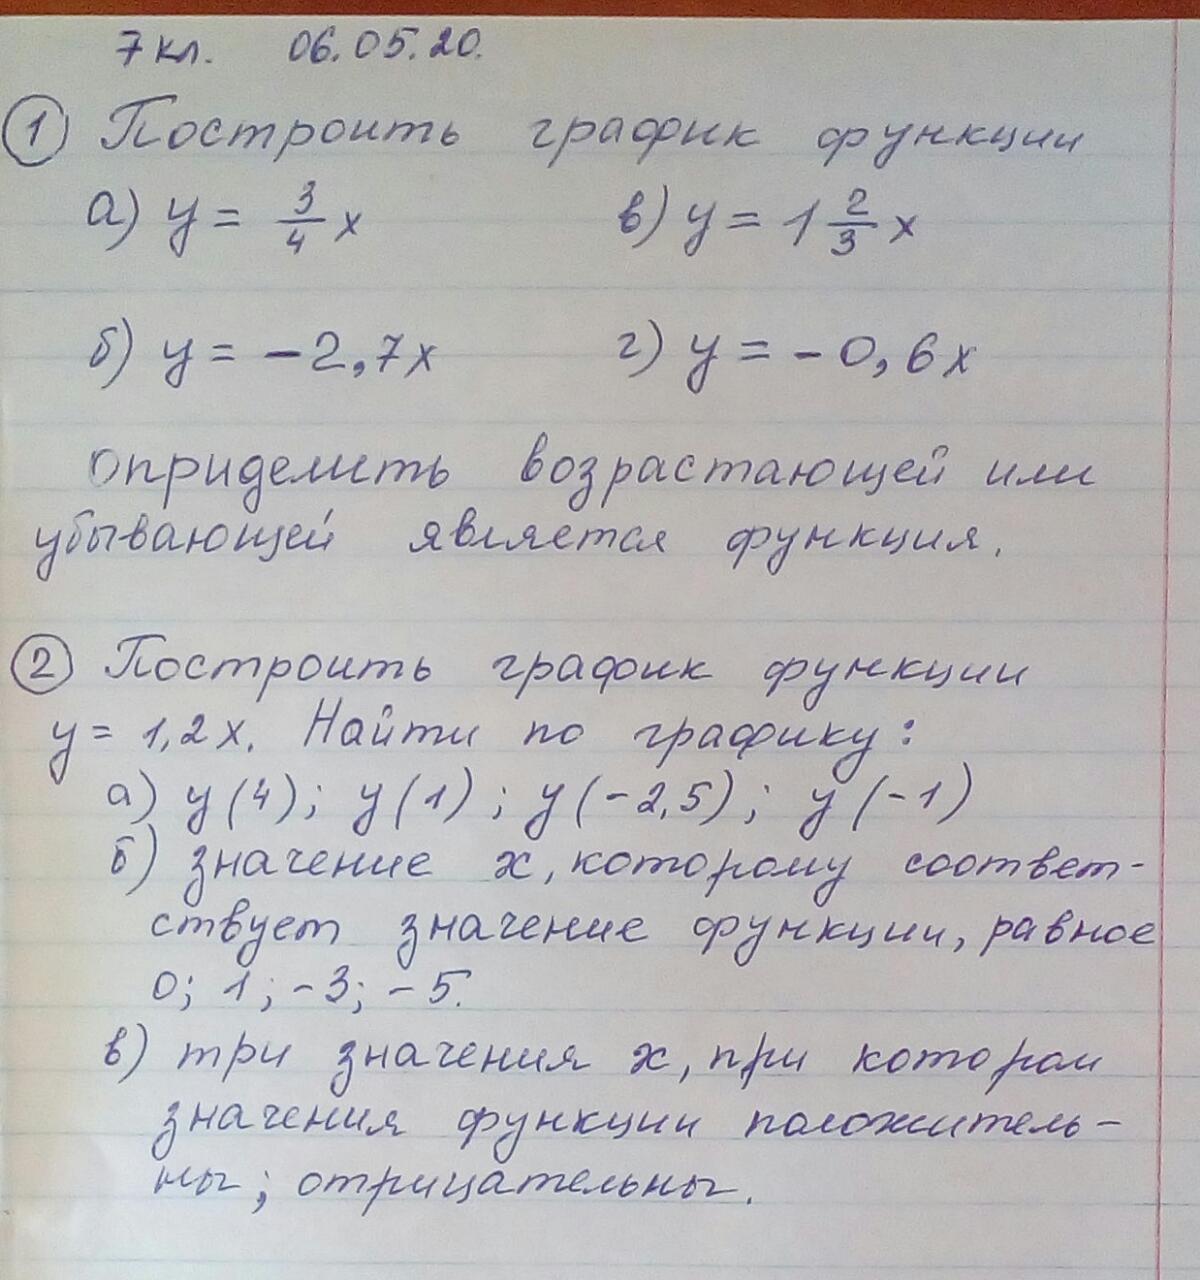 7 кл. 06.05.20.
① Построить график функции
а) y = 3/4 x в) y = 1 2/3 x
б) y = -2,7x г) y = -0,6x
Определить возрастающей или
убывающей является функция.
② Построить график функции
y = 1,2x. Найти по графику:
а) y(4); y(1); y(-2,5); y(-1)
б) значение x, которому соответ-
ствует значение функции, равное
0; 1; -3; -5.
в) три значения x, при котором
значения функции положитель-
ны; отрицательны.